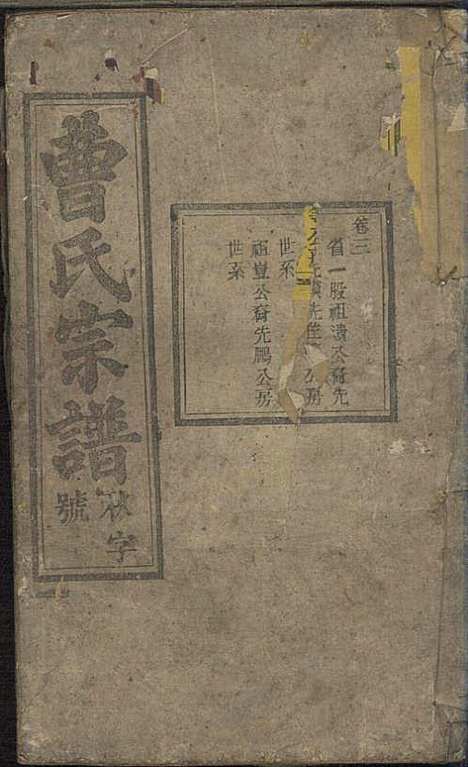 卷三
省一股祖公裔先
先公房
世系
祖公裔先鵬公房
世系
曹氏宗譜
秋字號